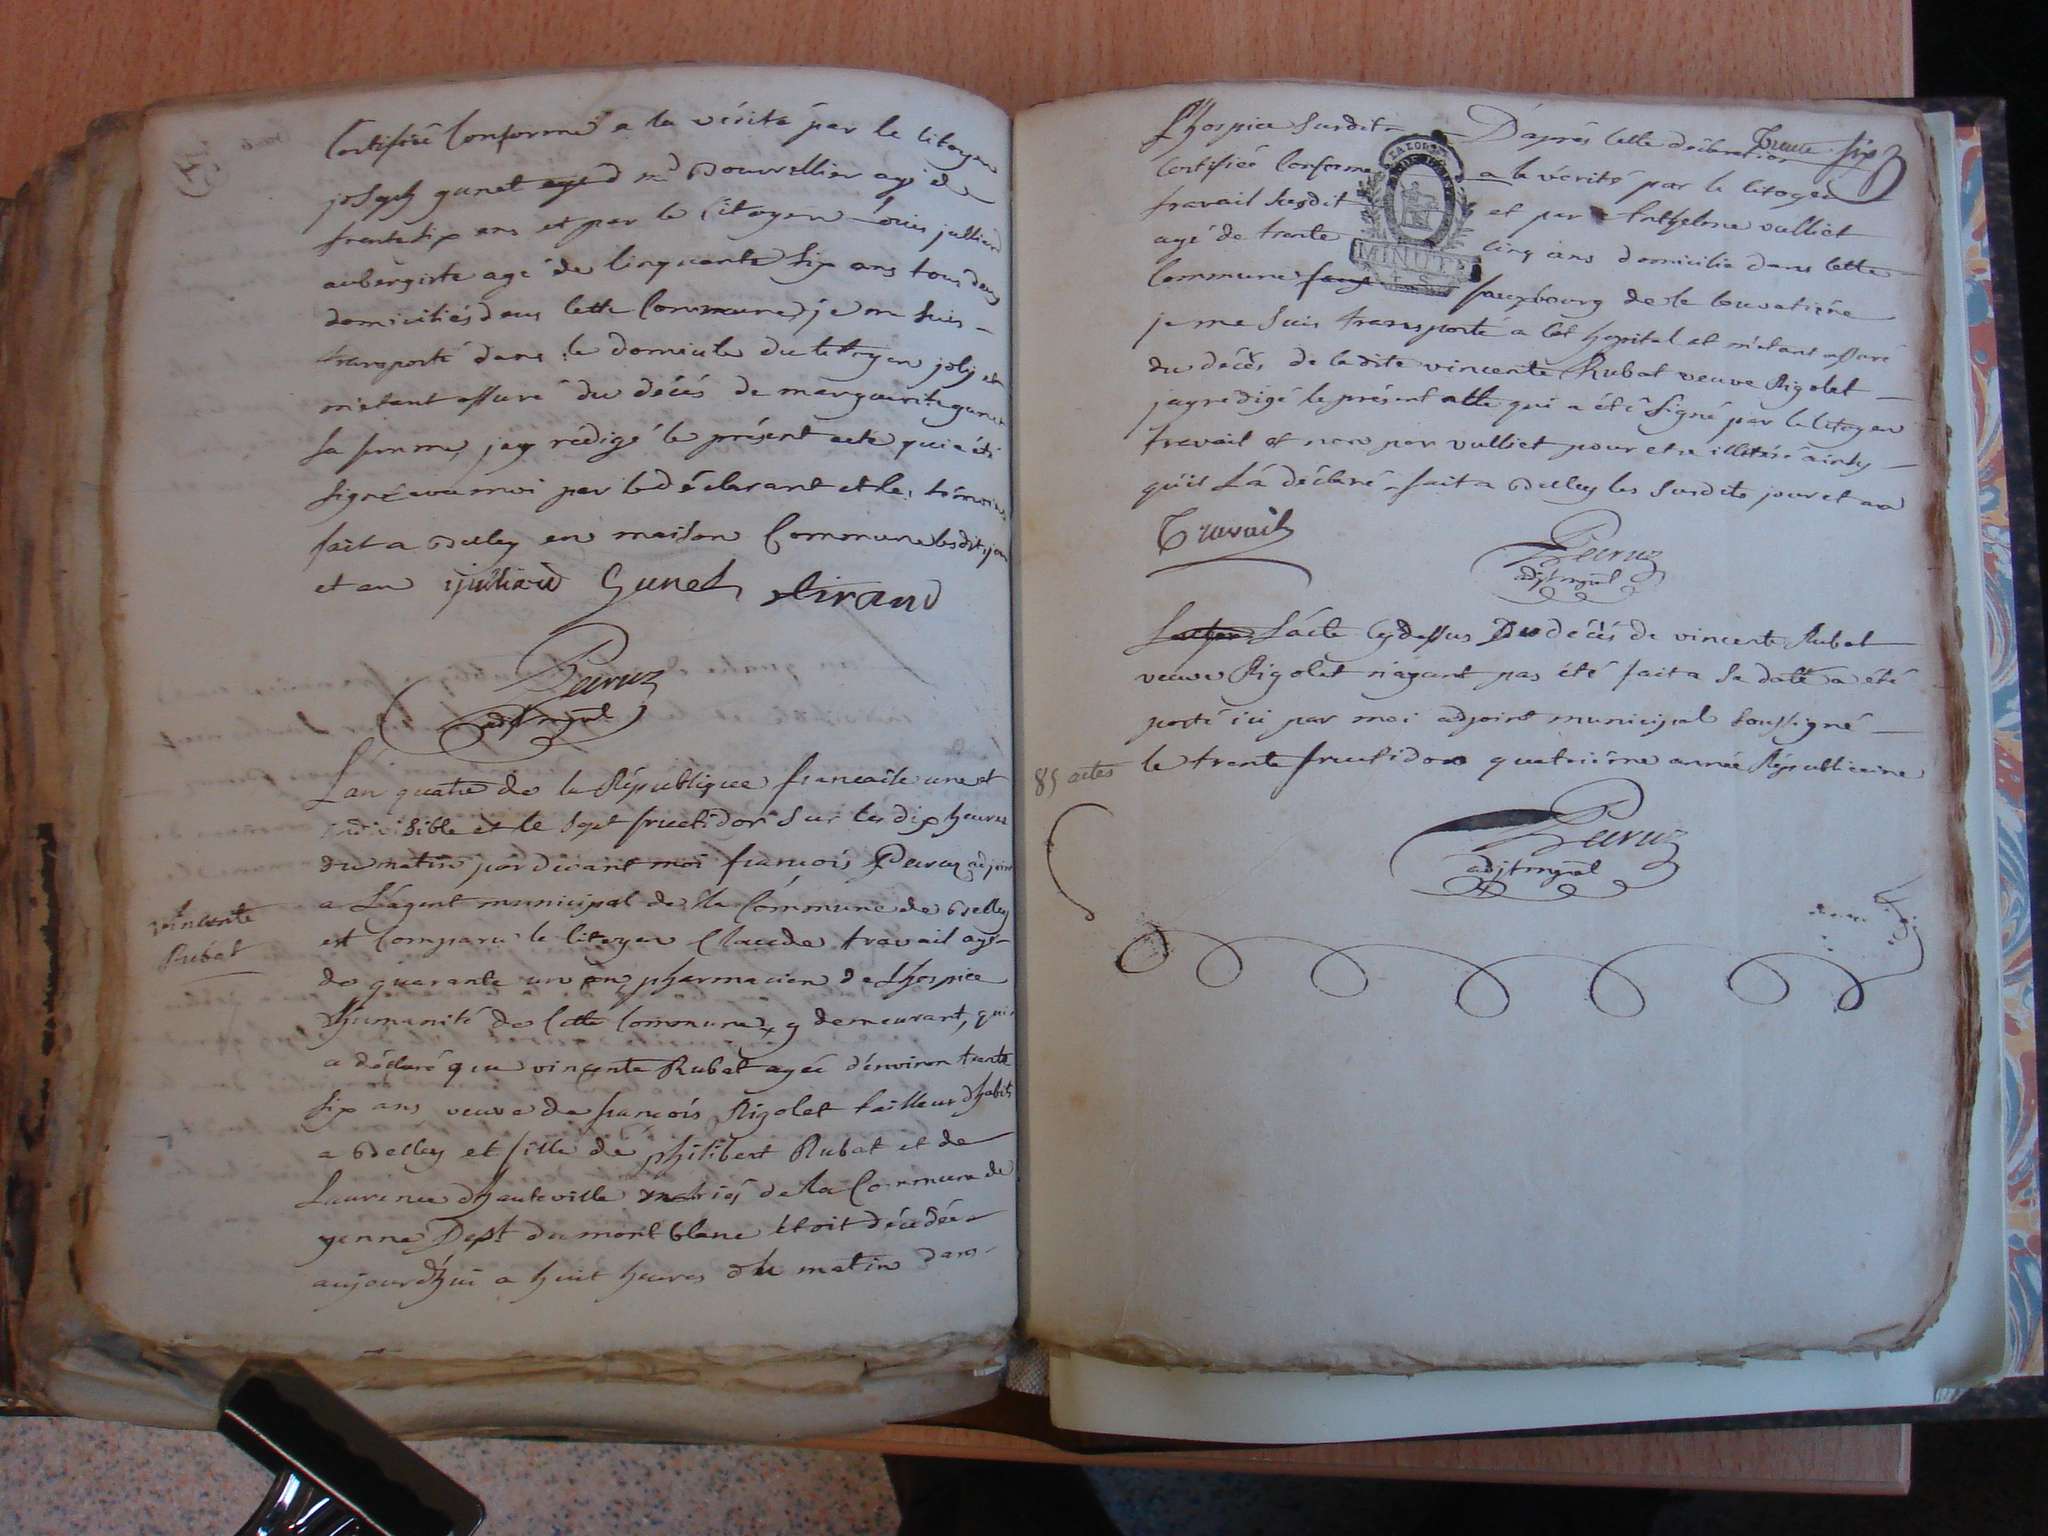 Certifiée Conforme a la vérité par le Citoyen
joseph gunet agé d md Bourrellier agé de
trente six ans et par le Citoyen Louis julliard
aubergiste agé de Cinquante six ans tous deux
domiciliés dans Cette Commune je me suis
transporté dans le domicile du Citoyen joly et
métant assuré du décés de marguerite gunet
sa femme, jay rédigé le présent acte qui a été
signé avec moi par le déclarant et les témoins
fait a Belley en maison Commune lesdits jour
et an julliard Gunet Airand
Peiruz
adjt mpal
vincente
Rubat
L'an quatre de la République francaise une et
indivisible et le sept fructidor sur les dix heures
du matin pardevant moi francois Peiruz adjoint
a L'agent municipal de la Commune de Belley
est Comparu le Citoyen Claude travail agé
de quarante un ans pharmacien de L'hospice
d'humanité de Cette Commune y demeurant, qui
a déclaré que vincente Rubat agée d'environ trente
six ans veuve de francois Rigolet tailleur d'habits
a Belley et fille de philibert Rubat et de
Laurence d'hauteville mariés de la Commune de
yenne Dept. du mont blanc étoit décédée
aujourd'hui a huit heures du matin dans
Trente Six
L'hospice susdit D'aprés Cette déclaration
Certifiée Conforme a la vérité par le Citoyen
travail susdit et par Anthelme vulliet
agé de trente Cinq ans domicilié dans Cette
Commune faux fauxbourg de la
MINUTE
je me suis transporté a Cet hopital et m'etant assuré
du décés de la dite vincente Rubat veuve Rigolet
jay rédigé le présent acte qui a été signé par le Citoyen
travail et non par vulliet pour etre illitéré ainsy
qu'il L'a déclaré fait a Belley les susdits jour et an
Travail
Peiruz
adjt mpal
L'acte Cydessus Du décés de vincente Rubat
veuve Rigolet n'ayant pas été fait a sa date a été
porté ici par moi adjoint municipal soussigné
le trente fructidor quatrième année Républicaine
85 actes
Peiruz
adjt mpal